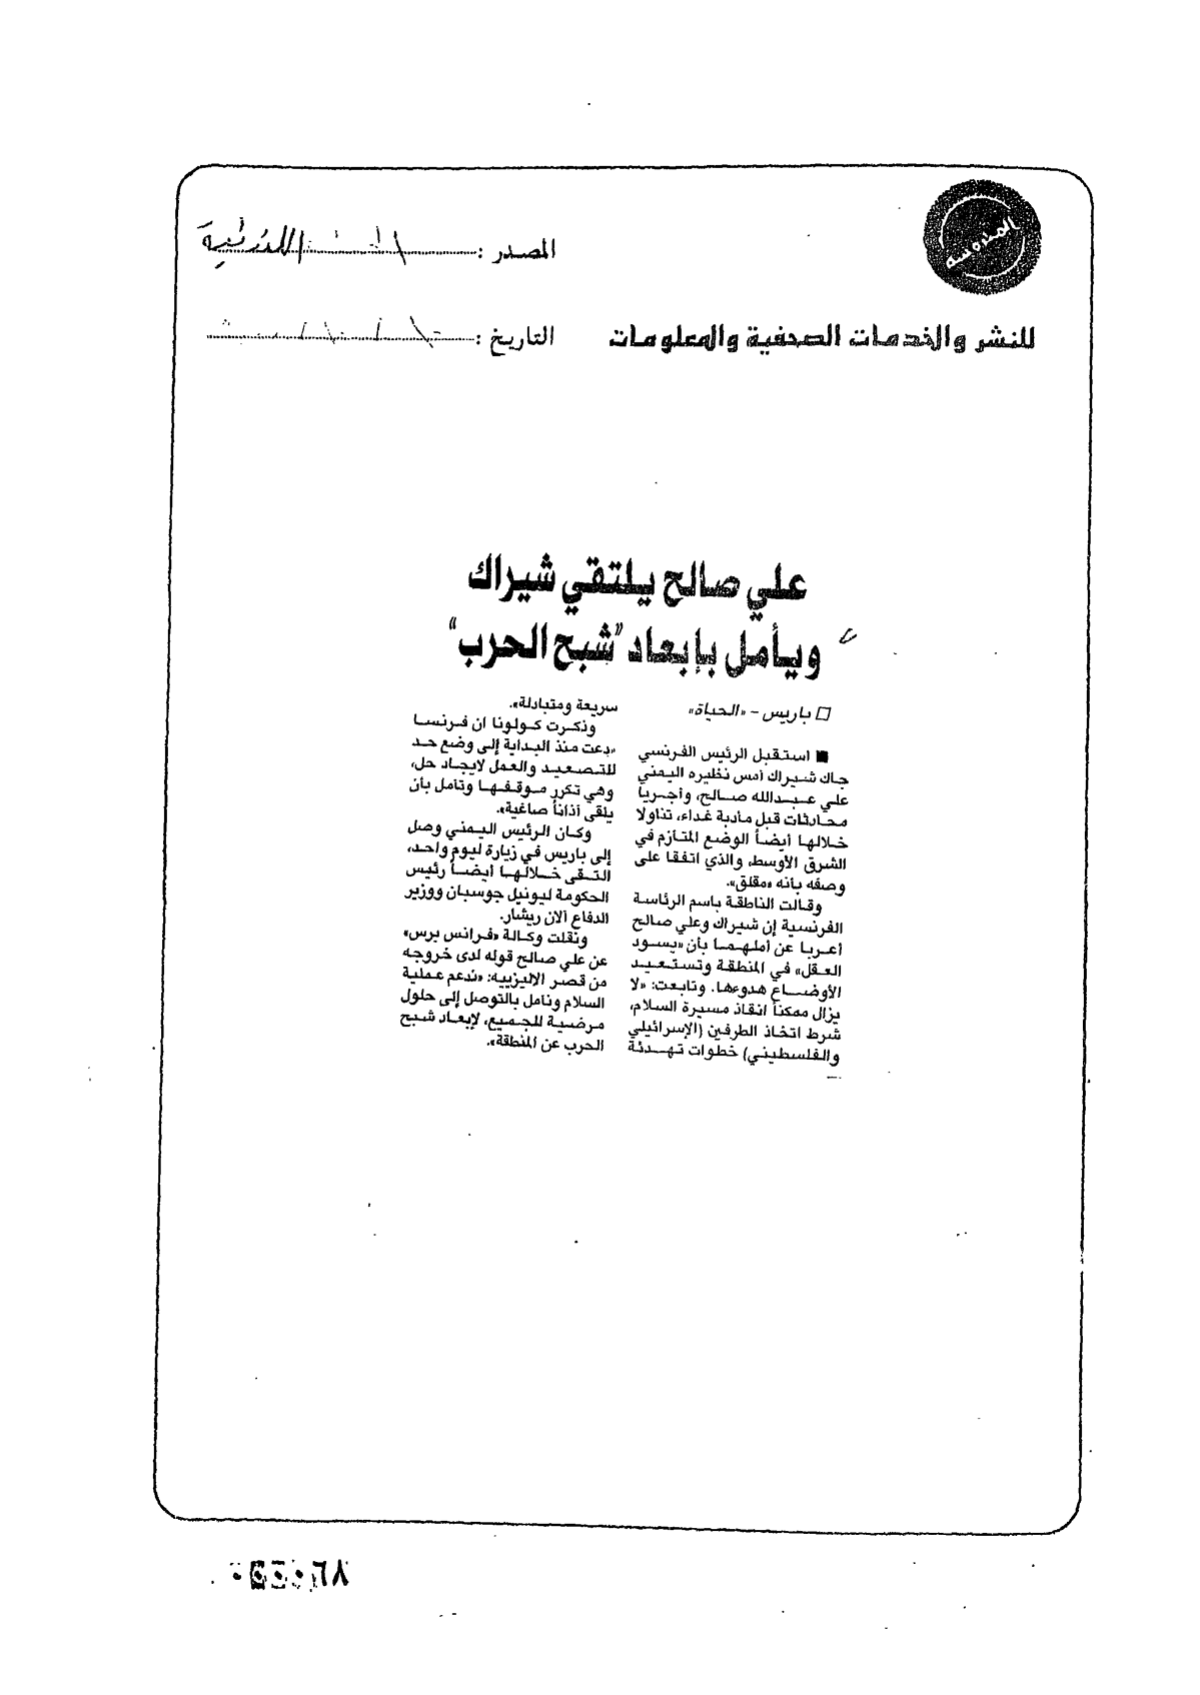 المصدر : اللندنية
للنشر والخدمات الصحفية والمعلومات
التاريخ :
علي صالح يلتقي شيراك
ويأمل بإبعاد "شبح الحرب"
□ باريس – «الحياة»
■ استقبل الرئيس الفرنسي
جاك شيراك أمس نظيره اليمني
علي عبدالله صالح، وأجريا
محادثات قبل مأدبة غداء، تناولا
خلالها أيضاً الوضع المتأزم في
الشرق الأوسط، والذي اتفقا على
وصفه بأنه «مقلق».
وقالت الناطقة باسم الرئاسة
الفرنسية إن شيراك وعلي صالح
أعربا عن أملهما بأن «يسود
العقل» في المنطقة وتستعيد
الأوضاع هدوءها. وتابعت: «لا
يزال ممكناً انقاذ مسيرة السلام،
شرط اتخاذ الطرفين (الإسرائيلي
والفلسطيني) خطوات تهدئة
سريعة ومتبادلة».
وذكرت كولونا ان فرنسا
«دعت منذ البداية إلى وضع حد
للتصعيد والعمل لايجاد حل،
وهي تكرر موقفها وتأمل بأن
يلقى أذاناً صاغية».
وكان الرئيس اليمني وصل
إلى باريس في زيارة ليوم واحد،
التقى خلالها أيضاً رئيس
الحكومة ليونيل جوسبان ووزير
الدفاع ألان ريشار.
ونقلت وكالة «فرانس برس»
عن علي صالح قوله لدى خروجه
من قصر الاليزييه: «ندعم عملية
السلام ونأمل بالتوصل إلى حلول
مرضية للجميع، لإبعاد شبح
الحرب عن المنطقة».